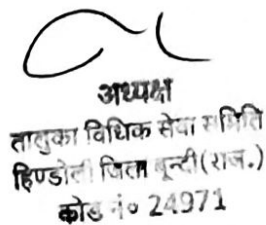 अध्यक्ष
तालुका विधिक सेवा समिति
हिण्डोली जिला बून्दी (राज.)
कोड नं० 24971